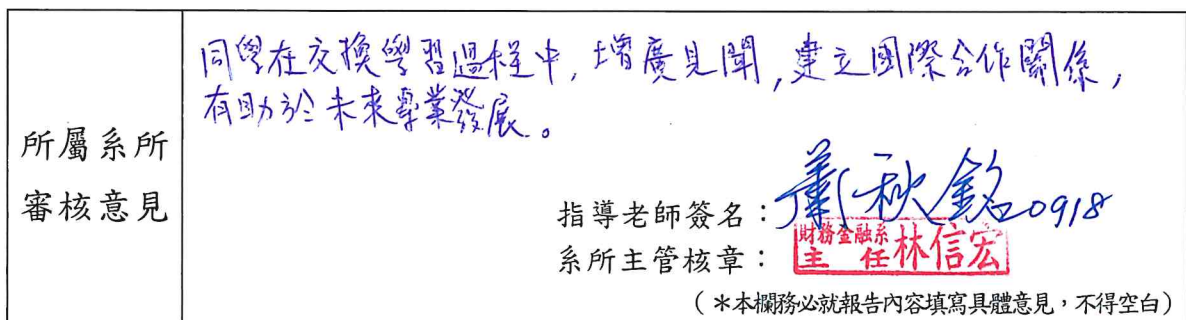 所屬系所
審核意見
同學在交換學習過程中,增廣見聞,建立國際合作關係,
有助於未來專業發展。
指導老師簽名:蕭秋銘0918
系所主管核章:財務金融系主任林信宏
(*本欄務必就報告內容填寫具體意見,不得空白)